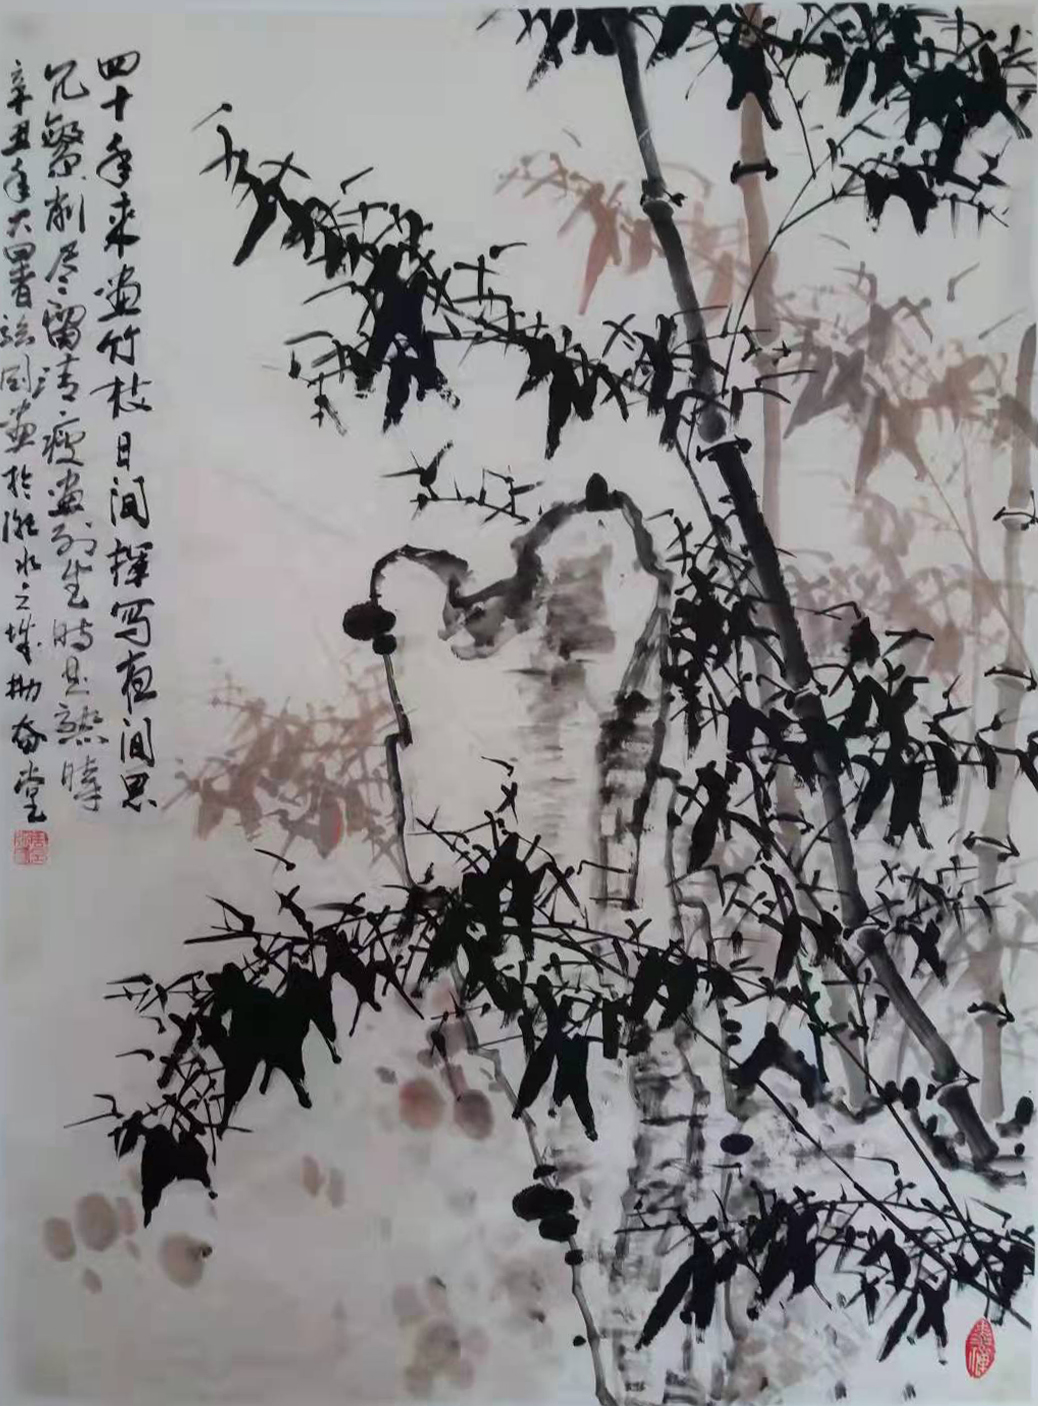 四十年来画竹枝日间挥写夜间思
冗繁削尽留清瘦画到生时是熟时
辛丑年大暑 画於 水之城 奋堂